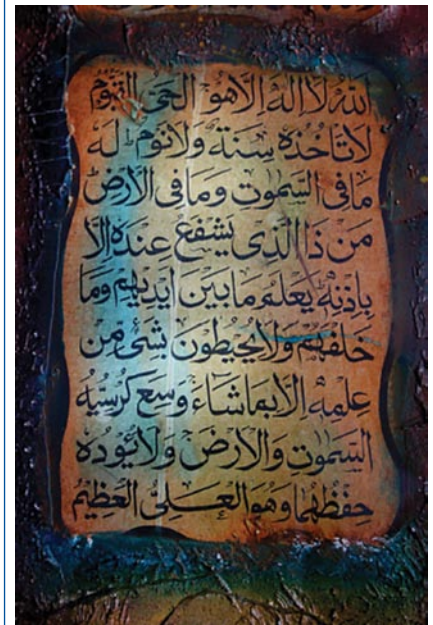 اللهُ لَا اِلٰهَ اِلَّا هُوَ الْحَيُّ الْقَيُّوْمُ
لَا تَاْخُذُهٗ سِنَةٌ وَّلَا نَوْمٌ ؕ لَهٗ
مَا فِی السَّمٰوٰتِ وَمَا فِی الْاَرْضِ ؕ
مَنْ ذَا الَّذِیْ یَشْفَعُ عِنْدَهٗ اِلَّا
بِاِذْنِهٖ ؕ یَعْلَمُ مَا بَیْنَ اَیْدِیْهِمْ وَمَا
خَلْفَهُمْ وَلَا یُحِیْطُوْنَ بِشَیْءٍ مِّنْ
عِلْمِهٖ اِلَّا بِمَا شَآءَ وَسِعَ كُرْسِیُّهُ
السَّمٰوٰتِ وَالْاَرْضَ وَلَا یَئُوْدُهٗ
حِفْظُهُمَا وَهُوَ الْعَلِیُّ الْعَظِیْمُ